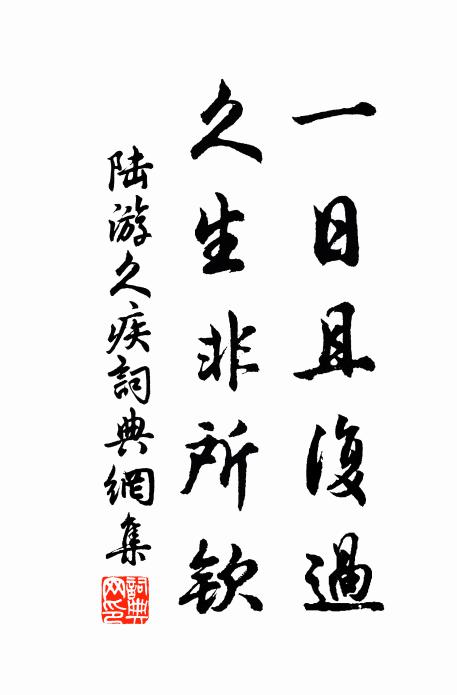 一日且復過
久生非所欽
陸游久疾詞典網集
詞典
网印